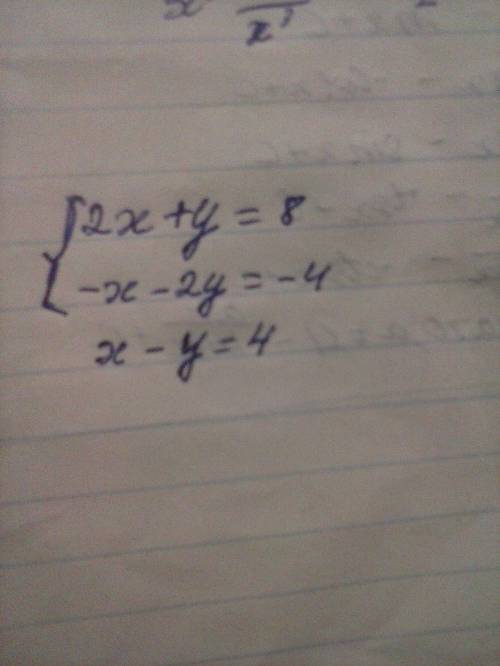 2x + y = 8
-x - 2y = -4
x - y = 4